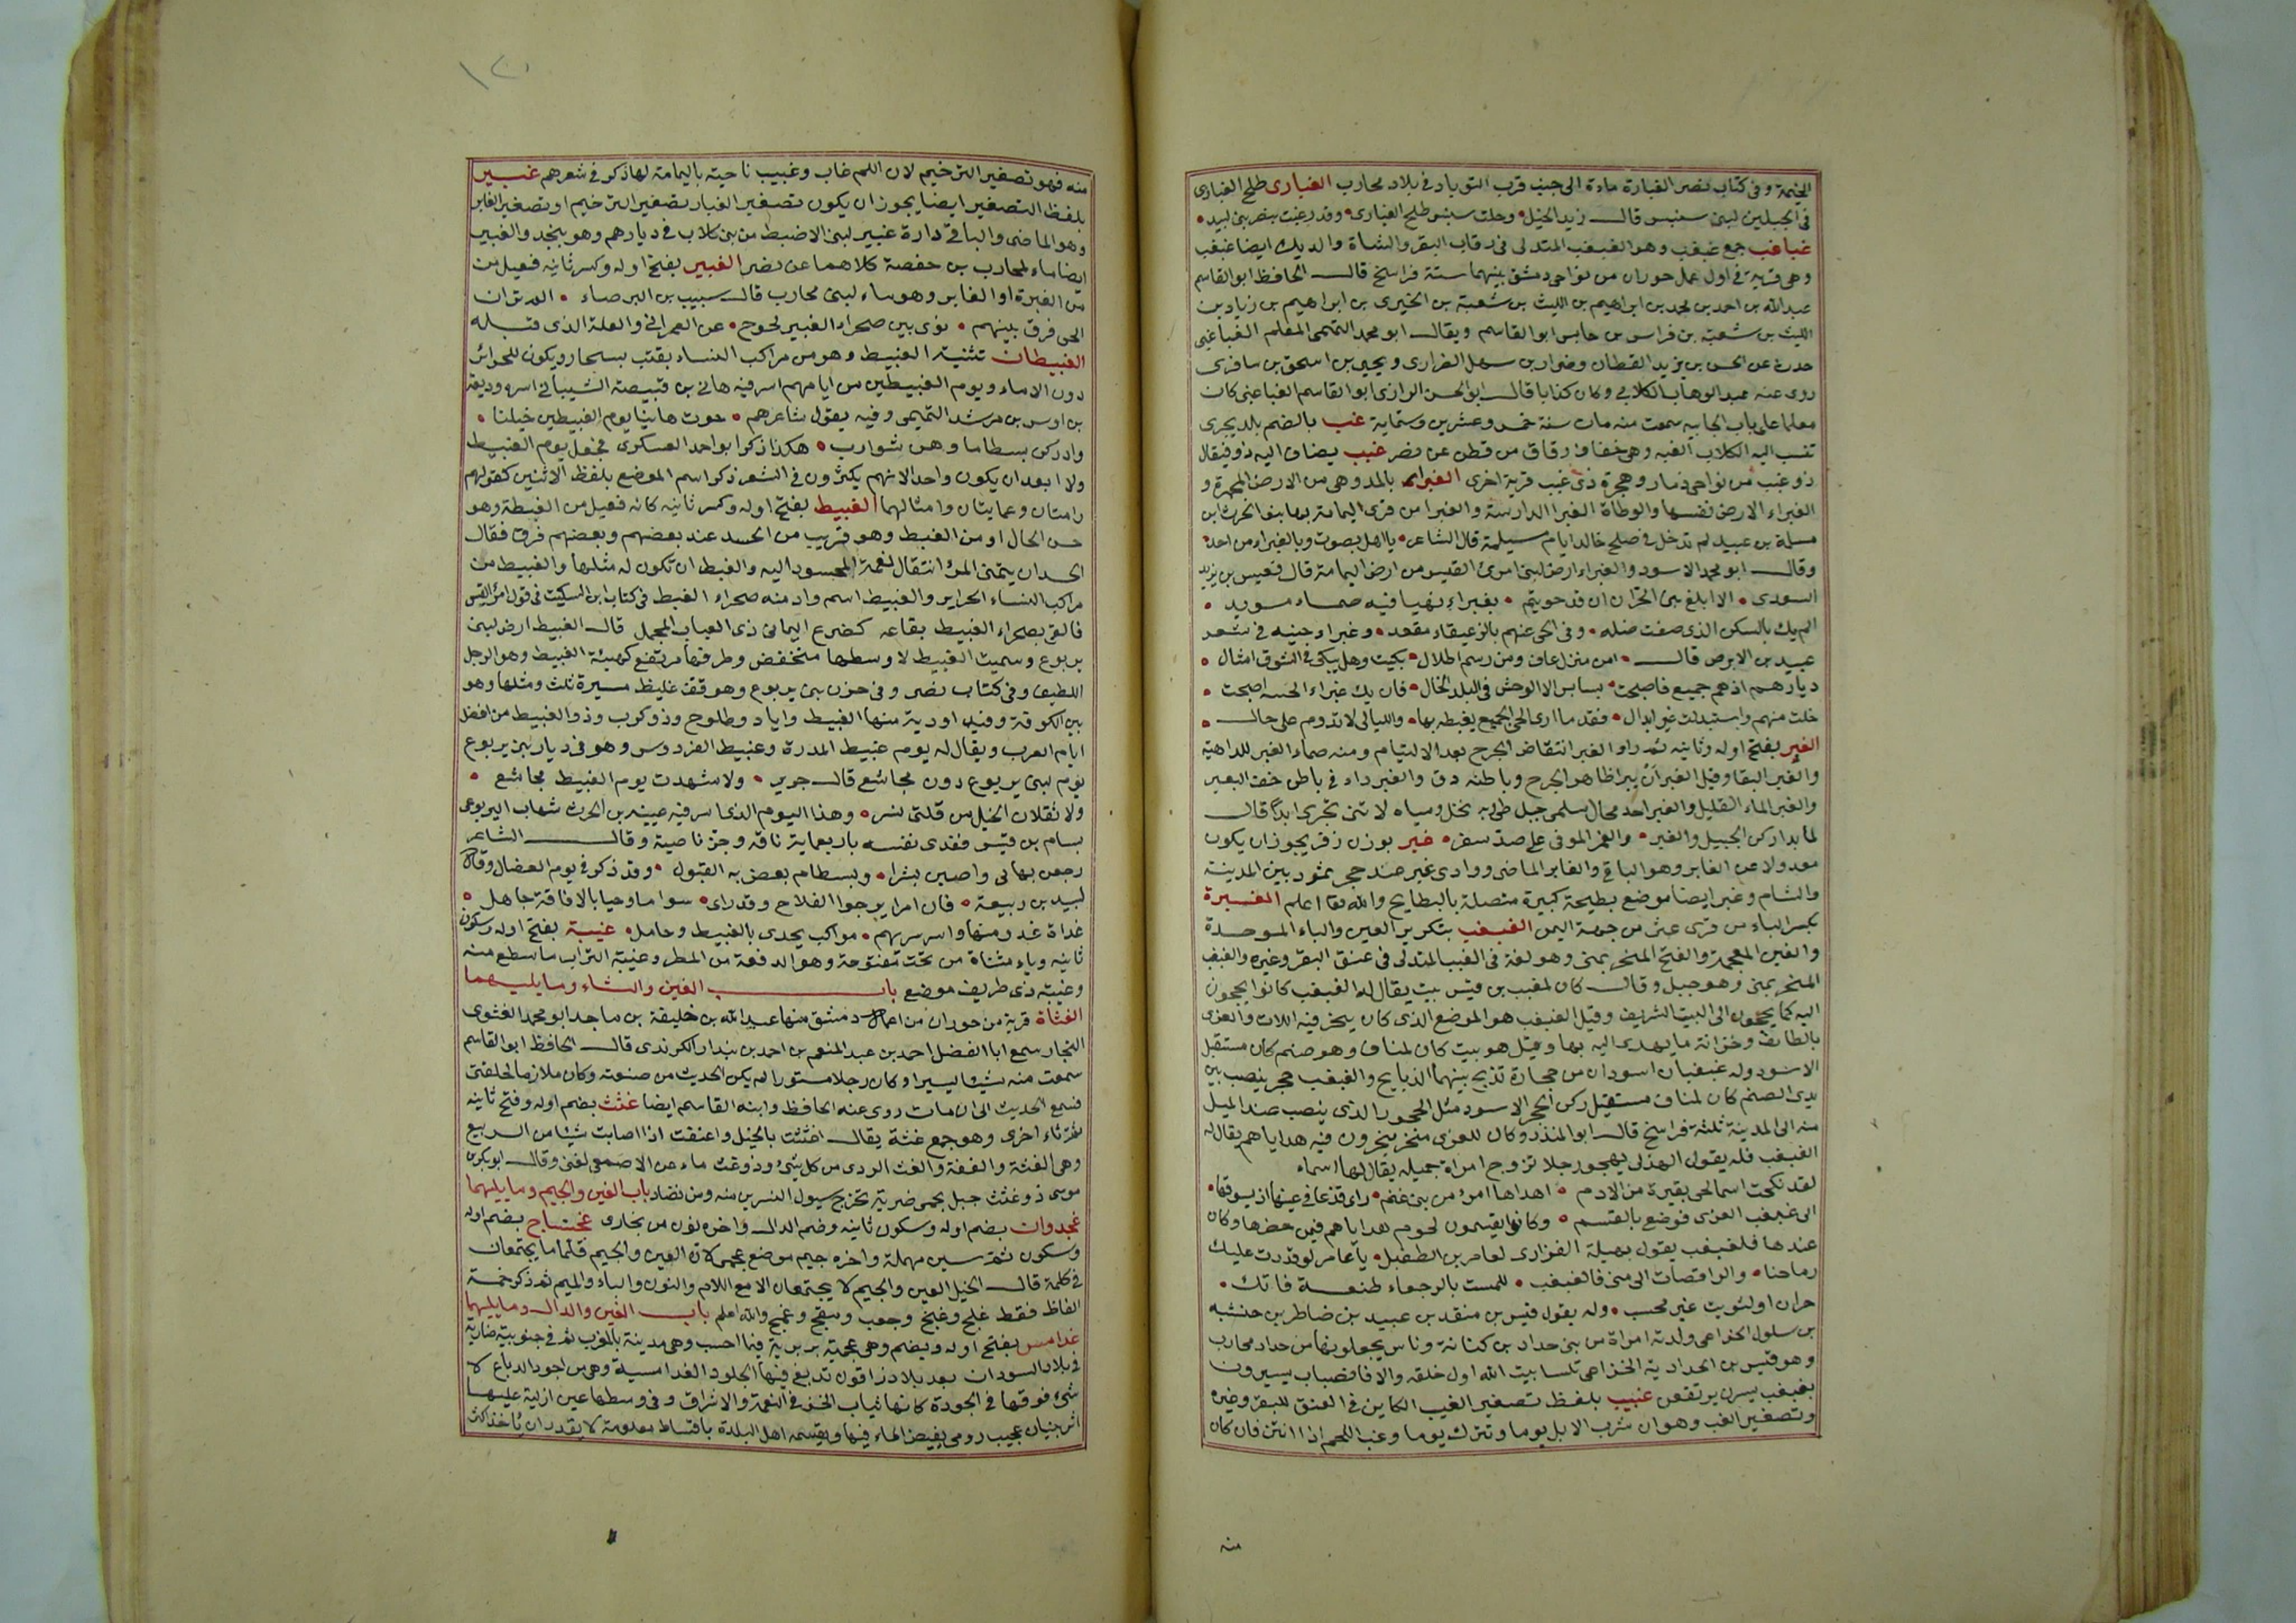 الخيمة وفى كتاب نصر الغبارة ماءة الى جنب قرب التوباد فى بلاد محارب الغبارى طلح الغبارى
فى الجبلين لبنى سنبس قالــ زيد الخيل • وحلت سنبس طلح الغبارى • وقد رغبت بنصر بنى لبيد •
غباغب جمع غبغب وهو الغبغب المتدلى فى رقاب البقر والشاة والديك ايضا غبغب
وهى قرية فى اول عمل حوران من نواحى دمشق بينهما ستة فراسخ قالــ الحافظ ابو القاسم
عبد الله بن احمد بن محمد بن ابراهيم بن الليث بن شعبة بن البخترى بن ابراهيم بن زياد بن
الليث بن شعبة بن فراس بن حابس ابو القاسم ويقالــ ابو محمد التميمى المعلم الغباغبى
حدث عن الحسن بن يزيد القطان وضرار بن سهل الضرارى ويحيى بن اسحق بن سافرى
روى عنه عبد الوهاب الكلابى وكان كذابا قالــ ابو الحسن الرازى ابو القاسم الغباغبى كان
معلما على باب الجابيه سمعت منه مات سنة خمس وعشرين وستماية غب بالضم بلد بحرى
تنسب اليه الكلاب الغبيه وهى خفاف دقاق من قطن عن نصر غبب يضاف اليه ذو فيقال
ذو غبب من نواحى ذمار وهجرة ذى غبب قرية اخرى الغبراء بالمد وهى من الارض الحمرة و
الغبراء الارض نفسها والوطاة الغبرا الدارسة والغبرا من قرى اليمامة بها بنو الحرث بن
مسلمة بن عبيد لم تدخل فى صلح خالد ايام مسيلمة قال الشاعر • يا هل بصوت وبالغبراء من احد •
وقالــ ابو محمد الاسود والغبراء ارض لبنى امرئ القيس من ارض اليمامة قال قيس بن يزيد
السعدى • الا ابلغ بنى الحران ان قد حويتم • بغبراء نهيا فيه صماء مويد •
الم يك بالسكن الذى صفت ضله • وفى الحى عنهم بالزعيقاء مقعد • وغبراء جنيه فى شعر
عبيد بن الابرص قالــ • امن منزل عاف ومن رسم اطلال • بكيت وهل يبكى فى الشوق امثال •
ديارهم اذ هم جميع فاصبحت • بسابس الا الوحش فى البلد الخال • فان يك غبراء الخبيبة اصبحت •
خلت منهم واستبدلت غير ابدال • فقد ما ارى الحى الجميع بغبطه بها • والليالى لا تدوم على حالــ •
الغبر بفتح اوله وثانيه ثم راء الغبر انتقاض الجرح بعد الالتيام ومنه صماء الغبر للداهية
والغبر البقا وقيل الغبر ان يبرا ظاهر الجرح وباطنه دق والغبر داء فى باطن خف البعير
والغبر الماء القليل والغبر احد محال سلمى جبل طى به نخل ومياه لا تنى تجرى ابدا قال
لما بدا ركن الجبيل والغبر • والغمر الموفى على صدا سفر • غبر بوزن زفر يجوز ان يكون
معدولا عن الغابر وهو الباقى والغابر الماضى ووادى غبر عند حجر ثمود بين المدينة
والشام وغبر ايضا موضع بطيحة كبيرة متصلة بالبطايح والله تعا اعلم الغبرة
بكسر الباء من قرى عثر من جهة اليمن الغبغب بتكرير الغين والباء الموحدة
والغين المعجمة والفتح المنحر بمنى وهو لغة فى الغبب المتدلى فى عنق البقر وغيره والغبغب
المنحر بمنى وهو جبل وقالــ كان لمعتب بن قيس بيت يقال له الغبغب كانوا يحجون
اليه كما يحجون الى البيت الشريف وقيل الغبغب هو الموضع الذى كان ينحر فيه اللات والعزى
بالطائف وخزانة ما يهدى اليه بها وقيل هو بيت كان لمناف وهو صنم كان مستقبل
الاسود وله غبغبان اسودان من حجارة تذبح بينهما الذبايح والغبغب حجر ينصب بين
يدى الصنم كان لمناف مستقبل ركن الحجر الاسود مثل الحجر الذى ينصب عند الميل
منه الى المدينة ثلثة فراسخ قالــ ابو المنذر وكان للعزى منحر ينحرون فيه هداياهم يقال له
الغبغب فله يقول الهذلى يهجو رجلا تزوج امراة جميله يقال لها اسماء
لقد نكحت اسما لحى بقيرة من الادم • اهداها امرؤ من بنى غنم • راى قذعا فى عينها اذ يسوقها •
الى غبغب العزى فوضع بالقسم • وكانوا يقسمون لحوم هداياهم فيمن حضرها وكان
عندها فلغبغب يقول نهيكة الفزارى لعامر بن الطفيل • يا عامر لو قدرت عليك
رماحنا • والراقصات الى منى فالغبغب • للمست بالرجعاء طنعة فاتك •
حران او لثويت غير محسب • وله يقول قيس بن منقد بن عبيد بن ضاطر بن حنشبه
بن سلول الخزاعى ولدته امراة من بنى حداد بن كنانة وناس يجعلونها من حداد محارب
وهو قيس بن الحدادية الخزاعى تلسا بيت الله اول خلقه والا فانصاب يسيرون
بغبغب يسرن يرتقعن غبيب بلفظ تصغير الغبب الكاين فى العنق للبقر وغيره
وتصغير الغب وهو ان تشرب الابل يوما وتترك يوما وغب اللحم اذا انتن فان كان
منه
منه فهو تصغير الترخيم لان اللحم غاب وغبيب ناحية باليمامة لها ذكر فى شعرهم غبير
بلفظ التصغير ايضا يجوز ان يكون تصغير الغبار تصغير الترخيم او تصغير الغابر
وهو الماضى والباقى دارة غبير لبنى الاضبط من بنى كلاب فى ديارهم وهو بنجد والغبير
ايضا ماء لمحارب بن خصفة كلاهما عن نصر الغبير بفتح اوله وكسر ثانيه فعيل من
من الغبرة او الغابر وهو ماء لبنى محارب قالــ شبيب بن البرصاء • الم تر ان
الحى فرق بينهم • نوى بين صحراء الغبير لجوج • عن العمرانى والعلة الذى قبله
الغبيطان تثنية الغبيط وهو من مراكب النساء يقتب بسجار ويكون للحرائر
دون الاماء ويوم الغبيطين من ايامهم اسر فيه هانى بن قبيصة الشيبانى اسره وديعة
بن اوس بن مرشد التميمى وفيه يقول شاعرهم • حوت هانيا يوم الغبيطين خيلنا •
وادركن بسطاما وهن شوارب • هكذا ذكر ابو احمد العسكرى فجعل يوم الغبيط
ولا ابعد ان يكون واحد لانهم يكثرون فى الشعر ذكر اسم الموضع بلفظ الاثنين كقولهم
رامتان وعمايتان وامثالهما الغبيط بفتح اوله وكسر ثانيه كانه فعيل من الغبطة وهو
حسن الحال او من الغبط وهو قريب من الحسد عند بعضهم وبعضهم فرق فقال
الحسد ان يتمنى المرؤ انتقال نعمة المحسود اليه والغبط ان تكون له مثلها والغبيط من
مراكب النساء الحراير والغبيط اسم واد منه صحراء الغبط فى كتاب ابن السكيت فى قول امرؤ القيس
فالقى بصحراء الغبيط بقاعه كضرع اليمانى ذى العياب المحمل قالــ الغبيط ارض لبنى
يربوع وسميت الغبيط لا وسطها منخفض وطرفها مرتفع كهيئة الغبيط وهو الرجل
اللطيف وفى كتاب نصر وفى حزن بنى يربوع وهو قف غليظ مسيرة ثلث ومثلها وهو
بين الكوفة وفيد اودية منها الغبيط واياد وطلوح وذو كوب وذو الغبيط من افضل
ايام العرب ويقال له يوم غبيط المدرة وغبيط الفردوس وهو فى ديار بنى يربوع
يوم لبنى يربوع دون مجاشع قالــ جرير • ولا شهدت يوم الغبيط مجاشع •
ولا نقلان الخيل من قلتى نسر • وهذا اليوم الذى اسر فيه عيينه بن الحرث شهاب اليربوعى
بسام بن قيس ففدى نفسه باربعماية ناقه وجز ناصية وقالــ الشاعر
رجعن بهانى واصبن بشرا • وبسطام بعض به القيول • وقد ذكر فى يوم العضال وقال
لبيد بن ربيعة • فان امرا يرجوا الفلاح وقد راى • سواما وحيا بالافاقة جاهل •
غداة غدو منها واسر سربهم • مواكب يحدى بالغبيط وحامل • غبية بفتح اوله وسكون
ثانيه وياء مثناة من تحت مفتوحة وهو الدفعة من المطر وغبية التراب ما سطع منه
وغبية ذى طريف موضع بابــ الغين والثاء وما يليهما
الغثاة قرية من حوران من اعمال دمشق منها عبد الله بن خليفة بن ماجد ابو محمد الغثوى
النجار سمع ابا الفضل احمد بن عبد المنعم بن احمد بن بندار الكرندى قالــ الحافظ ابو القاسم
سمعت منه شيئا يسيرا وكان رجلا مستورا لم يكن الحديث من صنعته وكان ملازما لحلقتى
فسمع الحديث الى ان مات روى عنه الحافظ وابنه القاسم ايضا غثث بضم اوله وفتح ثانيه
ثم ثاء اخرى وهو جمع غثة يقالــ اغثثت بالخيل واغتفت اذا اصابت شيئا من الربيع
وهى الغثة والغفة والغث الردى من كل شئ وذو غثث ماء عن الاصمعى لغنى وقالــ ابو بكر بن
موسى ذو غثث جبل بحمى ضرية تخرج سيول النسرين منه ومن نضاد باب الغين والجيم وما يليهما
غجدوان بضم اوله وسكون ثانيه وضم الدال واخره نون من بخارى غجساج بضم اوله
وسكون ثم سين مهملة واخره جيم موضع عجمى لان الغين والجيم قلما ما يجتمعان
فى كلمة قالــ الخليل الغين والجيم لا يجتمعان الا مع اللام والنون والباء والميم ثم ذكر خمسة
الفاظ فقط غلج وغنج وجغب وسبقج وغمج والله اعلم بابــ الغين والدال وما يليهما
غدامس بفتح اوله ويضم وهى عجمية بربرية فيما احسب وهى مدينة بالمغرب ثم فى جنوبيه ضاربة
فى بلاد السودان بعد بلاد زافون تدبغ فيها الجلود الغدامسية وهى من اجود الدباغ لا
شئ فوقها فى الجودة كانها ثياب الخز فى النعمة والاشراق وفى وسطها عين ازلية عليها
اثر بنيان عجيب رومى يفيض الماء فيها ويقسمه اهل البلدة باقساط معلومة لا يقدر ان ياخذ اكثر